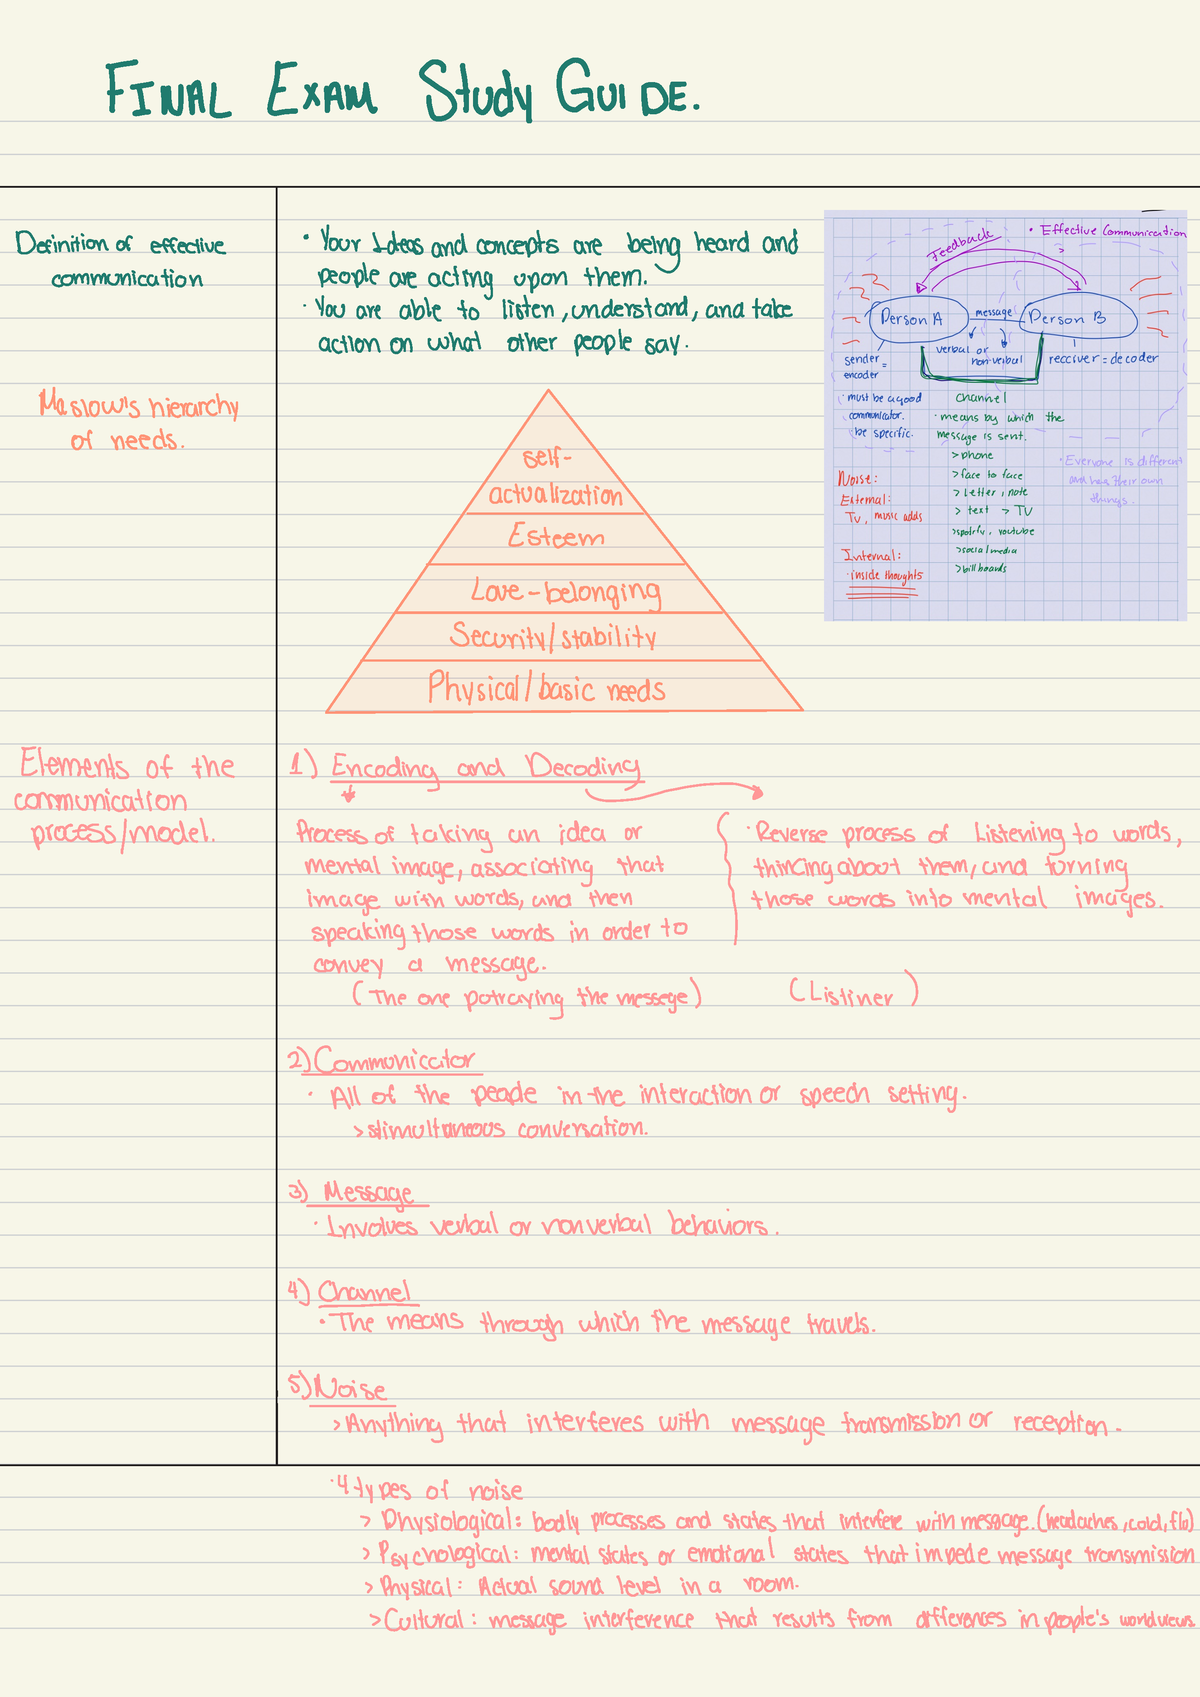 FINAL EXAM Study GUIDE.
Definition of effective
communication
· Your Ideas and concepts are being heard and
people are acting upon them.
· You are able to listen, understand, and take
action on what other people say.
· Effective Communication
Feedback
Person A
message
Person B
verbal or
non-verbal
sender =
encoder
receiver = decoder
· must be a good
communicator.
· be specific.
channel
· means by which the
message is sent.
> phone
> face to face
> Letter, note
> text > TV
> spotify, youtube
> social media
> bill boards
· Everyone is different
and has their own
things.
Noise:
External:
TV, music adds
Internal:
· inside thoughts
Maslow's hierarchy
of needs.
self-
actualization
Esteem
Love-belonging
Security/stability
Physical/basic needs
Elements of the
communication
process/model.
1) Encoding and Decoding
Process of taking an idea or
mental image, associating that
image with words, and then
speaking those words in order to
convey a message.
(The one potraying the messege)
· Reverse process of Listening to words,
thincing about them, and turning
those words into mental images.
(Listiner)
2) Communicator
· All of the people in the interaction or speech setting.
> stimultaneous conversation.
3) Message
· Involves verbal or nonverbal behaviors.
4) Channel
· The means through which the message travels.
5) Noise
> Anything that interferes with message transmission or reception.
· 4 types of noise
> Physiological: bodly processes and states that interfere with message. (headaches, cold, flu)
> Psychological: mental states or emotional states that impede message transmission
> Physical: Actual sound level in a room.
> Cultural: message interference that results from differences in people's worldviews